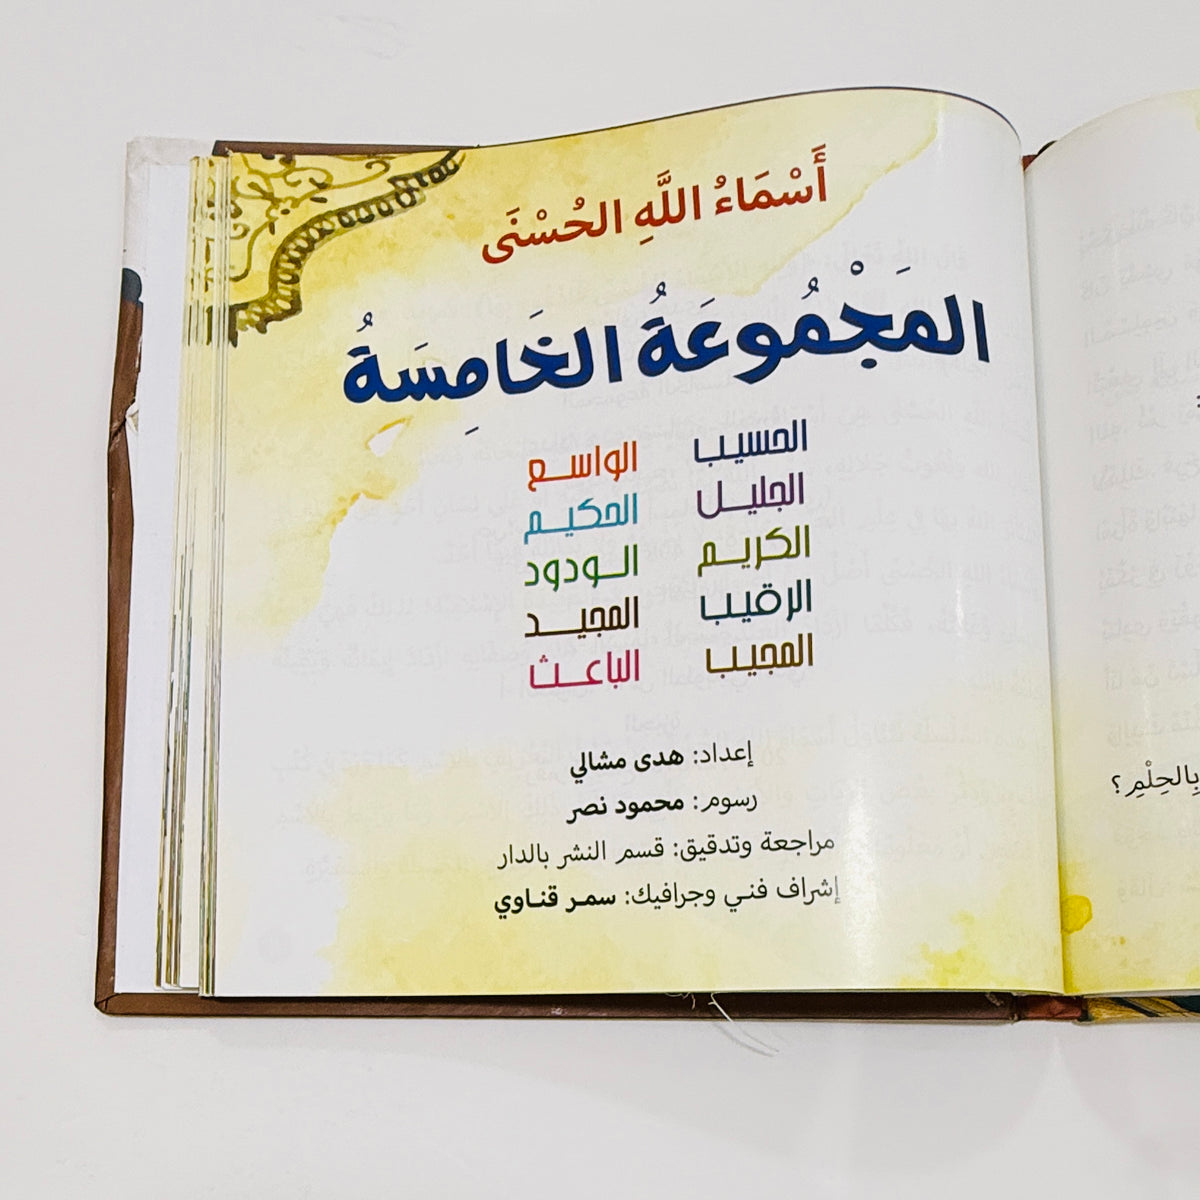 أَسْمَاءُ اللَّهِ الحُسْنَى
المَجْمُوعَةُ الخَامِسَةُ
الحسيب
الجليل
الكريم
الرقيب
المجيب
الواسع
الحكيم
الودود
المجيد
الباعث
إعداد: هدى مشالي
رسوم: محمود نصر
مراجعة وتدقيق: قسم النشر بالدار
إشراف فني وجرافيك: سمر قناوي
بِالحِلْمِ؟